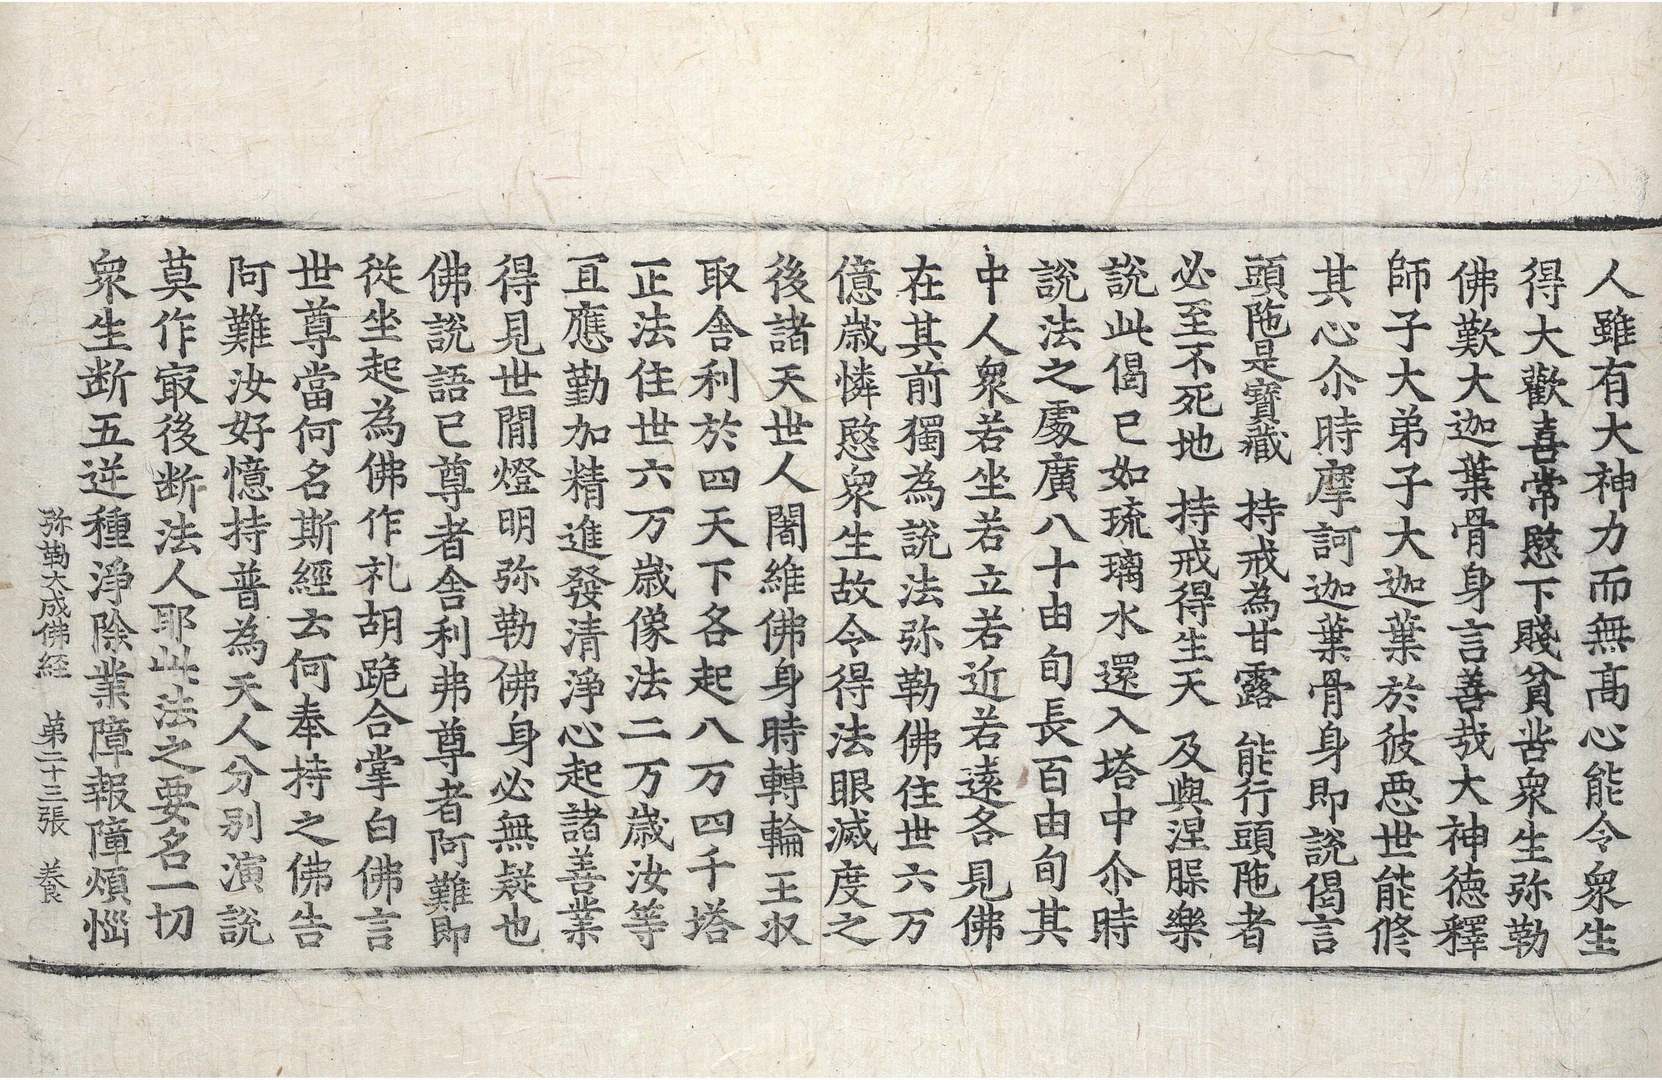 人雖有大神力而無髙心能令衆生
得大歡喜常愍下賤貧苦衆生弥勒
佛歎大迦葉骨身言善哉大神德釋
師子大弟子大迦葉於彼悪世能修
其心尒時摩訶迦葉骨身即說偈言
頭陁是寶藏　持戒為甘露　能行頭陁者
必至不死地　持戒得生天　及與涅槃樂
說此偈已如琉璃水還入塔中尒時
說法之處廣八十由旬長百由旬其
中人衆若坐若立若近若遠各見佛
在其前獨為說法弥勒佛住世六万
億歲憐愍衆生故令得法眼滅度之
後諸天世人闍維佛身時轉輪王収
取舍利於四天下各起八万四千塔
正法住世六万歲像法二万歲汝等
冝應勤加精進發清淨心起諸善業
得見世閒燈明弥勒佛身必無疑也
佛說語已尊者舍利弗尊者阿難即
従坐起為佛作礼胡跪合掌白佛言
世尊當何名斯經云何奉持之佛告
阿難汝好憶持普為天人分别演說
莫作寂後断法人耶此法之要名一切
衆生断五逆種淨除業障報障煩惱
弥勒大成佛経　第二十三張　養